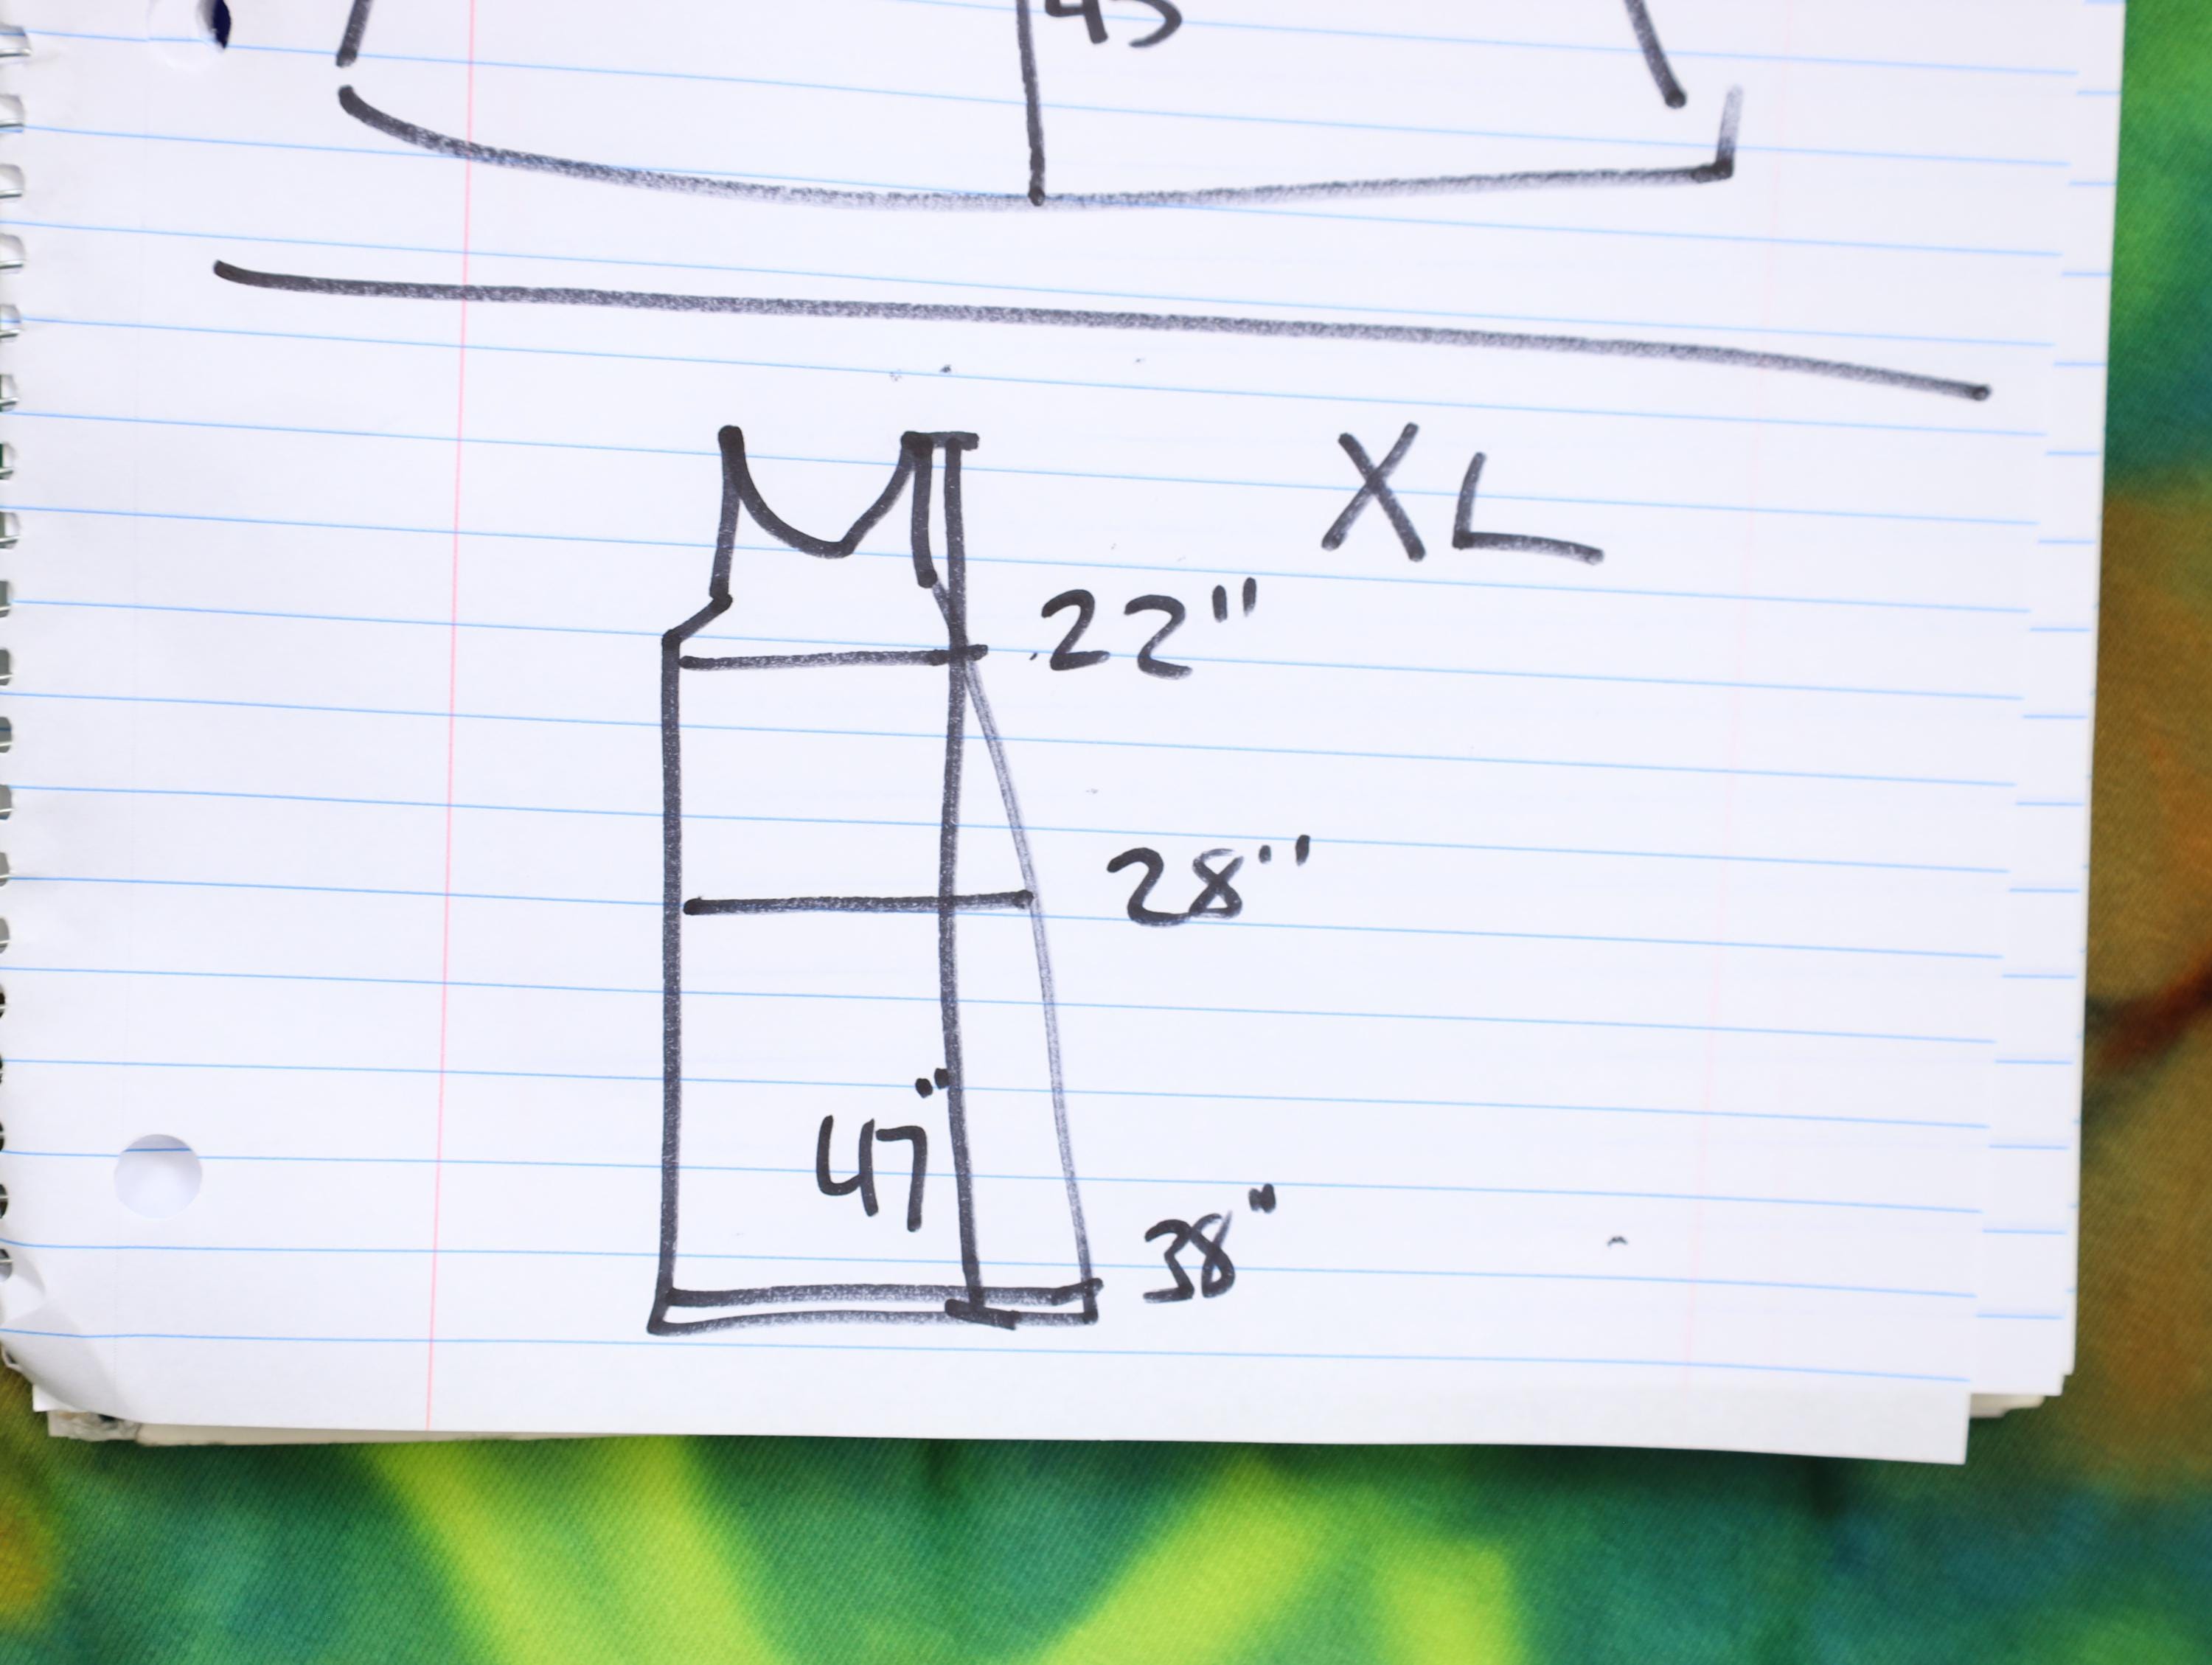 XL
22"
28"
47"
38"